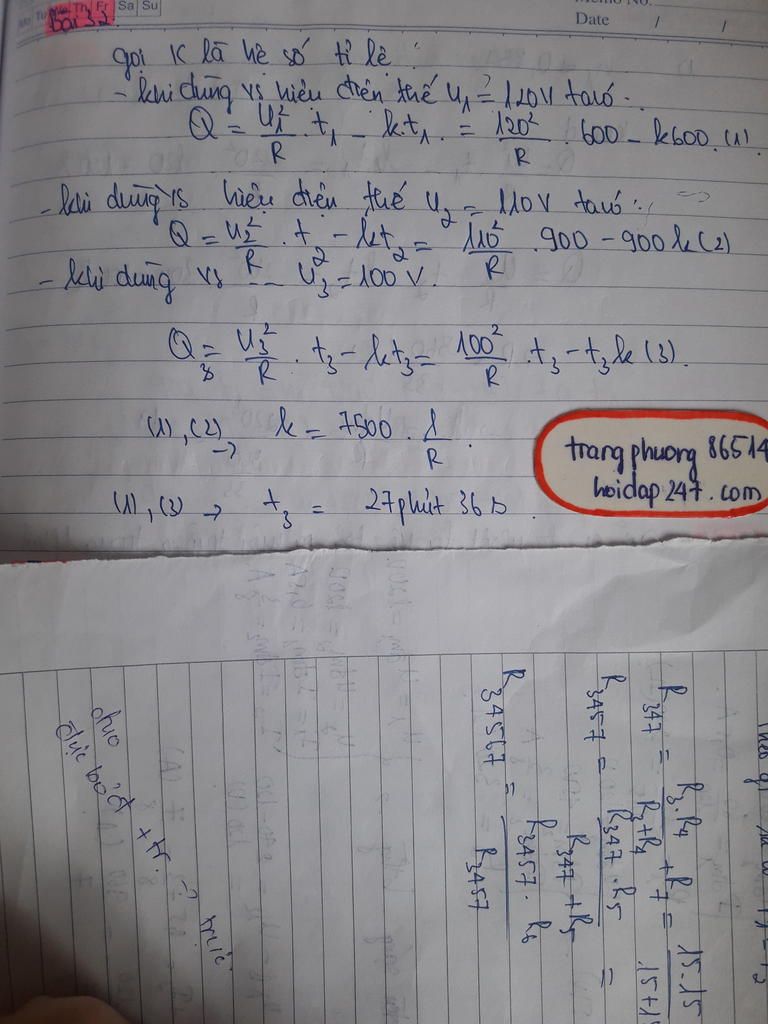 Memo No.
Mo Tu We Th Fr Sa Su
Date / /
Bài 32
gọi K là hệ số tỉ lệ :
- khi dùng vs hiệu điện thế U₁ = 120V ta có :
Q = U₁²/R . t₁ - k.t₁ = 120²/R . 600 - k600. (1)
- khi dùng vs hiệu điện thế U₂ = 110V ta có :
Q = U₂²/R . t₂ - kt₂ = 110²/R . 900 - 900k (2)
- khi dùng vs -- U₃ = 100 V.
Q₃ = U₃²/R . t₃ - kt₃ = 100²/R . t₃ - t₃k (3).
(1), (2) → k = 7500 . 1/R .
(1), (3) → t₃ = 27 phút 36 s .
trangphuong 86514
hoidap247.com
R₃₄₇ = R₃.R₄/R₃+R₄ + R₇ = 15.15/15+1
R₃₄₅₇ = R₃₄₇.R₅/R₃₄₇+R₅ =
R₃₄₅₆₇ = R₃₄₅₇.R₆/R₃₄₅₇